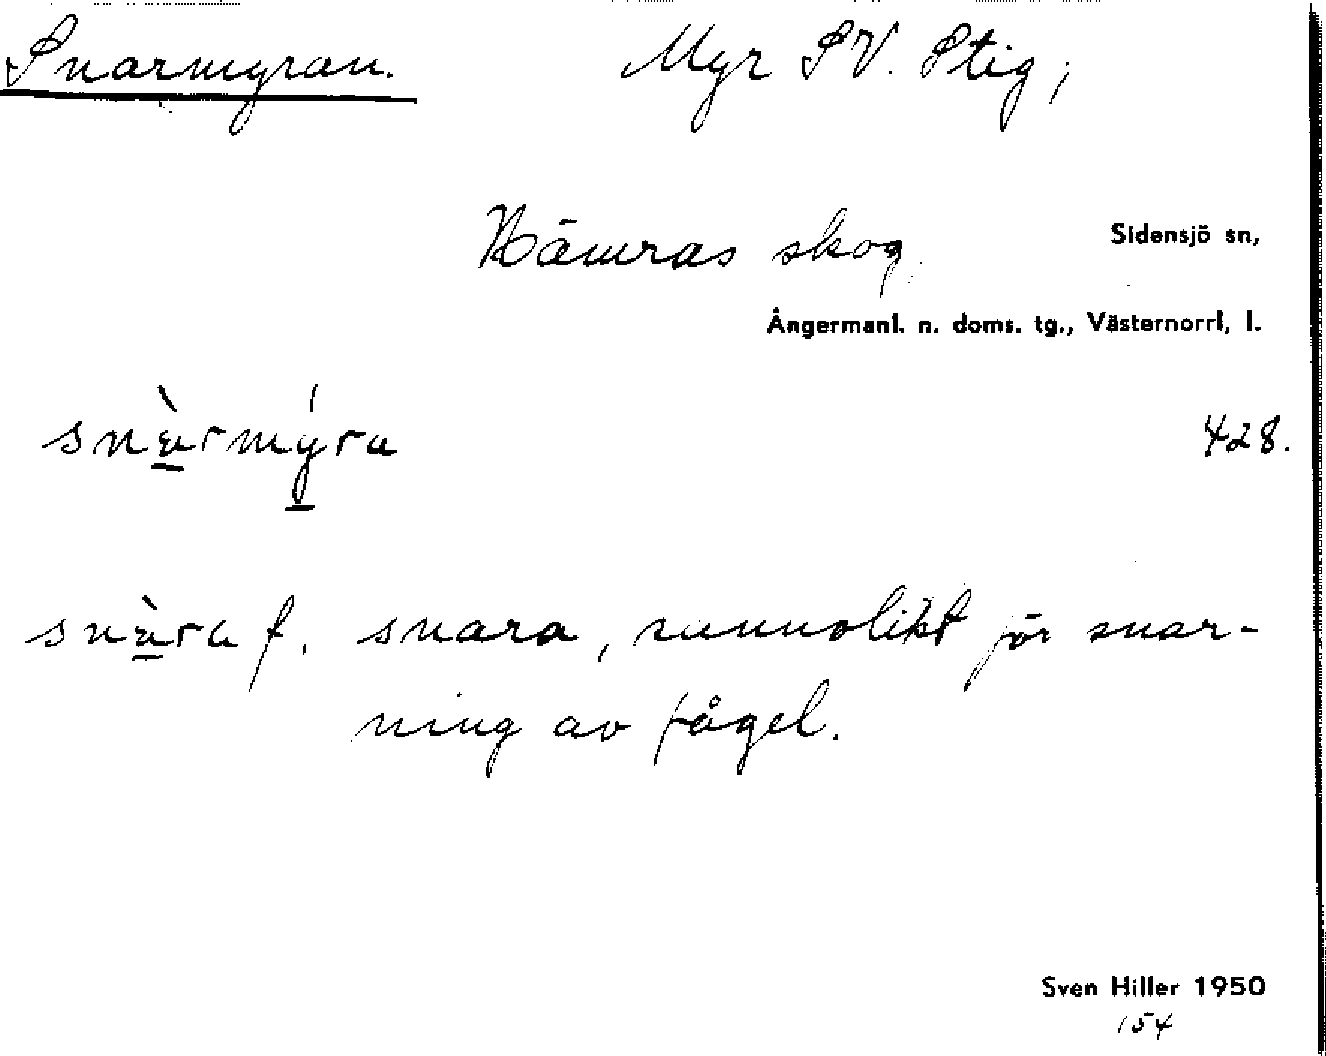 Snarmyran. Myr SV. Stig;
Hämras skog. Sidensjö sn,
Ångermanl. n. doms. tg., Västernorrl, l.
428.
snara, sannolikt för snar-
ning av fågel.
Sven Hiller 1950
154